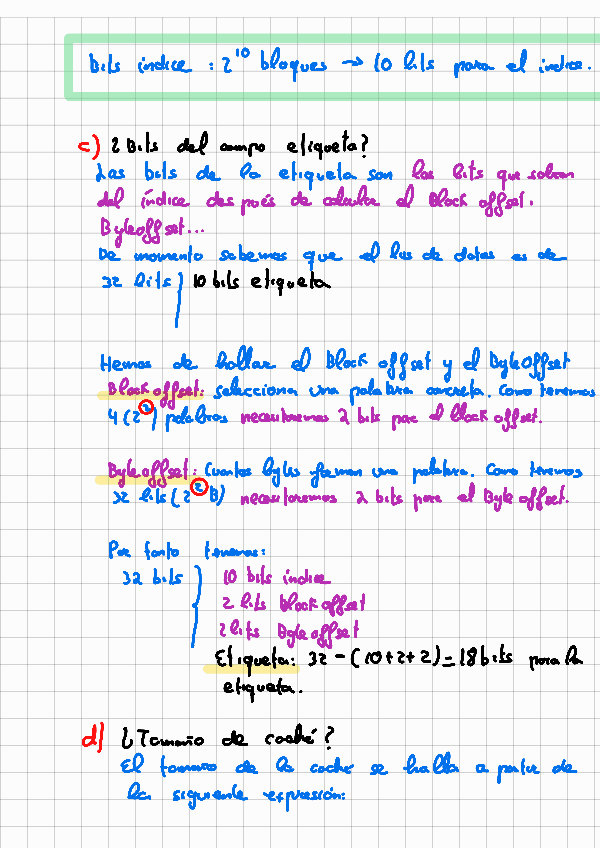 Bits índice : 2^10 bloques → 10 bits para el índice.
c) ¿Bits del campo etiqueta?
Las bits de la etiqueta son los bits que sobran
del índice después de calcular el Block offset.
Byteoffset...
De momento sabemos que el bus de datos es de
32 bits | 10 bits etiqueta
Hemos de hallar el Block offset y el Byte Offset
Block offset: selecciona una palabra concreta. Como tenemos
4 (2^2) palabras necesitaremos 2 bits para el block offset.
Byte offset: Cuantos bytes forman una palabra. Como tenemos
32 bits (2^2 B) necesitaremos 2 bits para el Byte offset.
Por tanto tenemos:
32 bits } 10 bits índice
2 bits Block offset
2 bits Byte offset
Etiqueta: 32 - (10+2+2) = 18 bits para la
etiqueta.
d) ¿Tamaño de caché?
El tamaño de la caché se halla a partir de
la siguiente expresión: